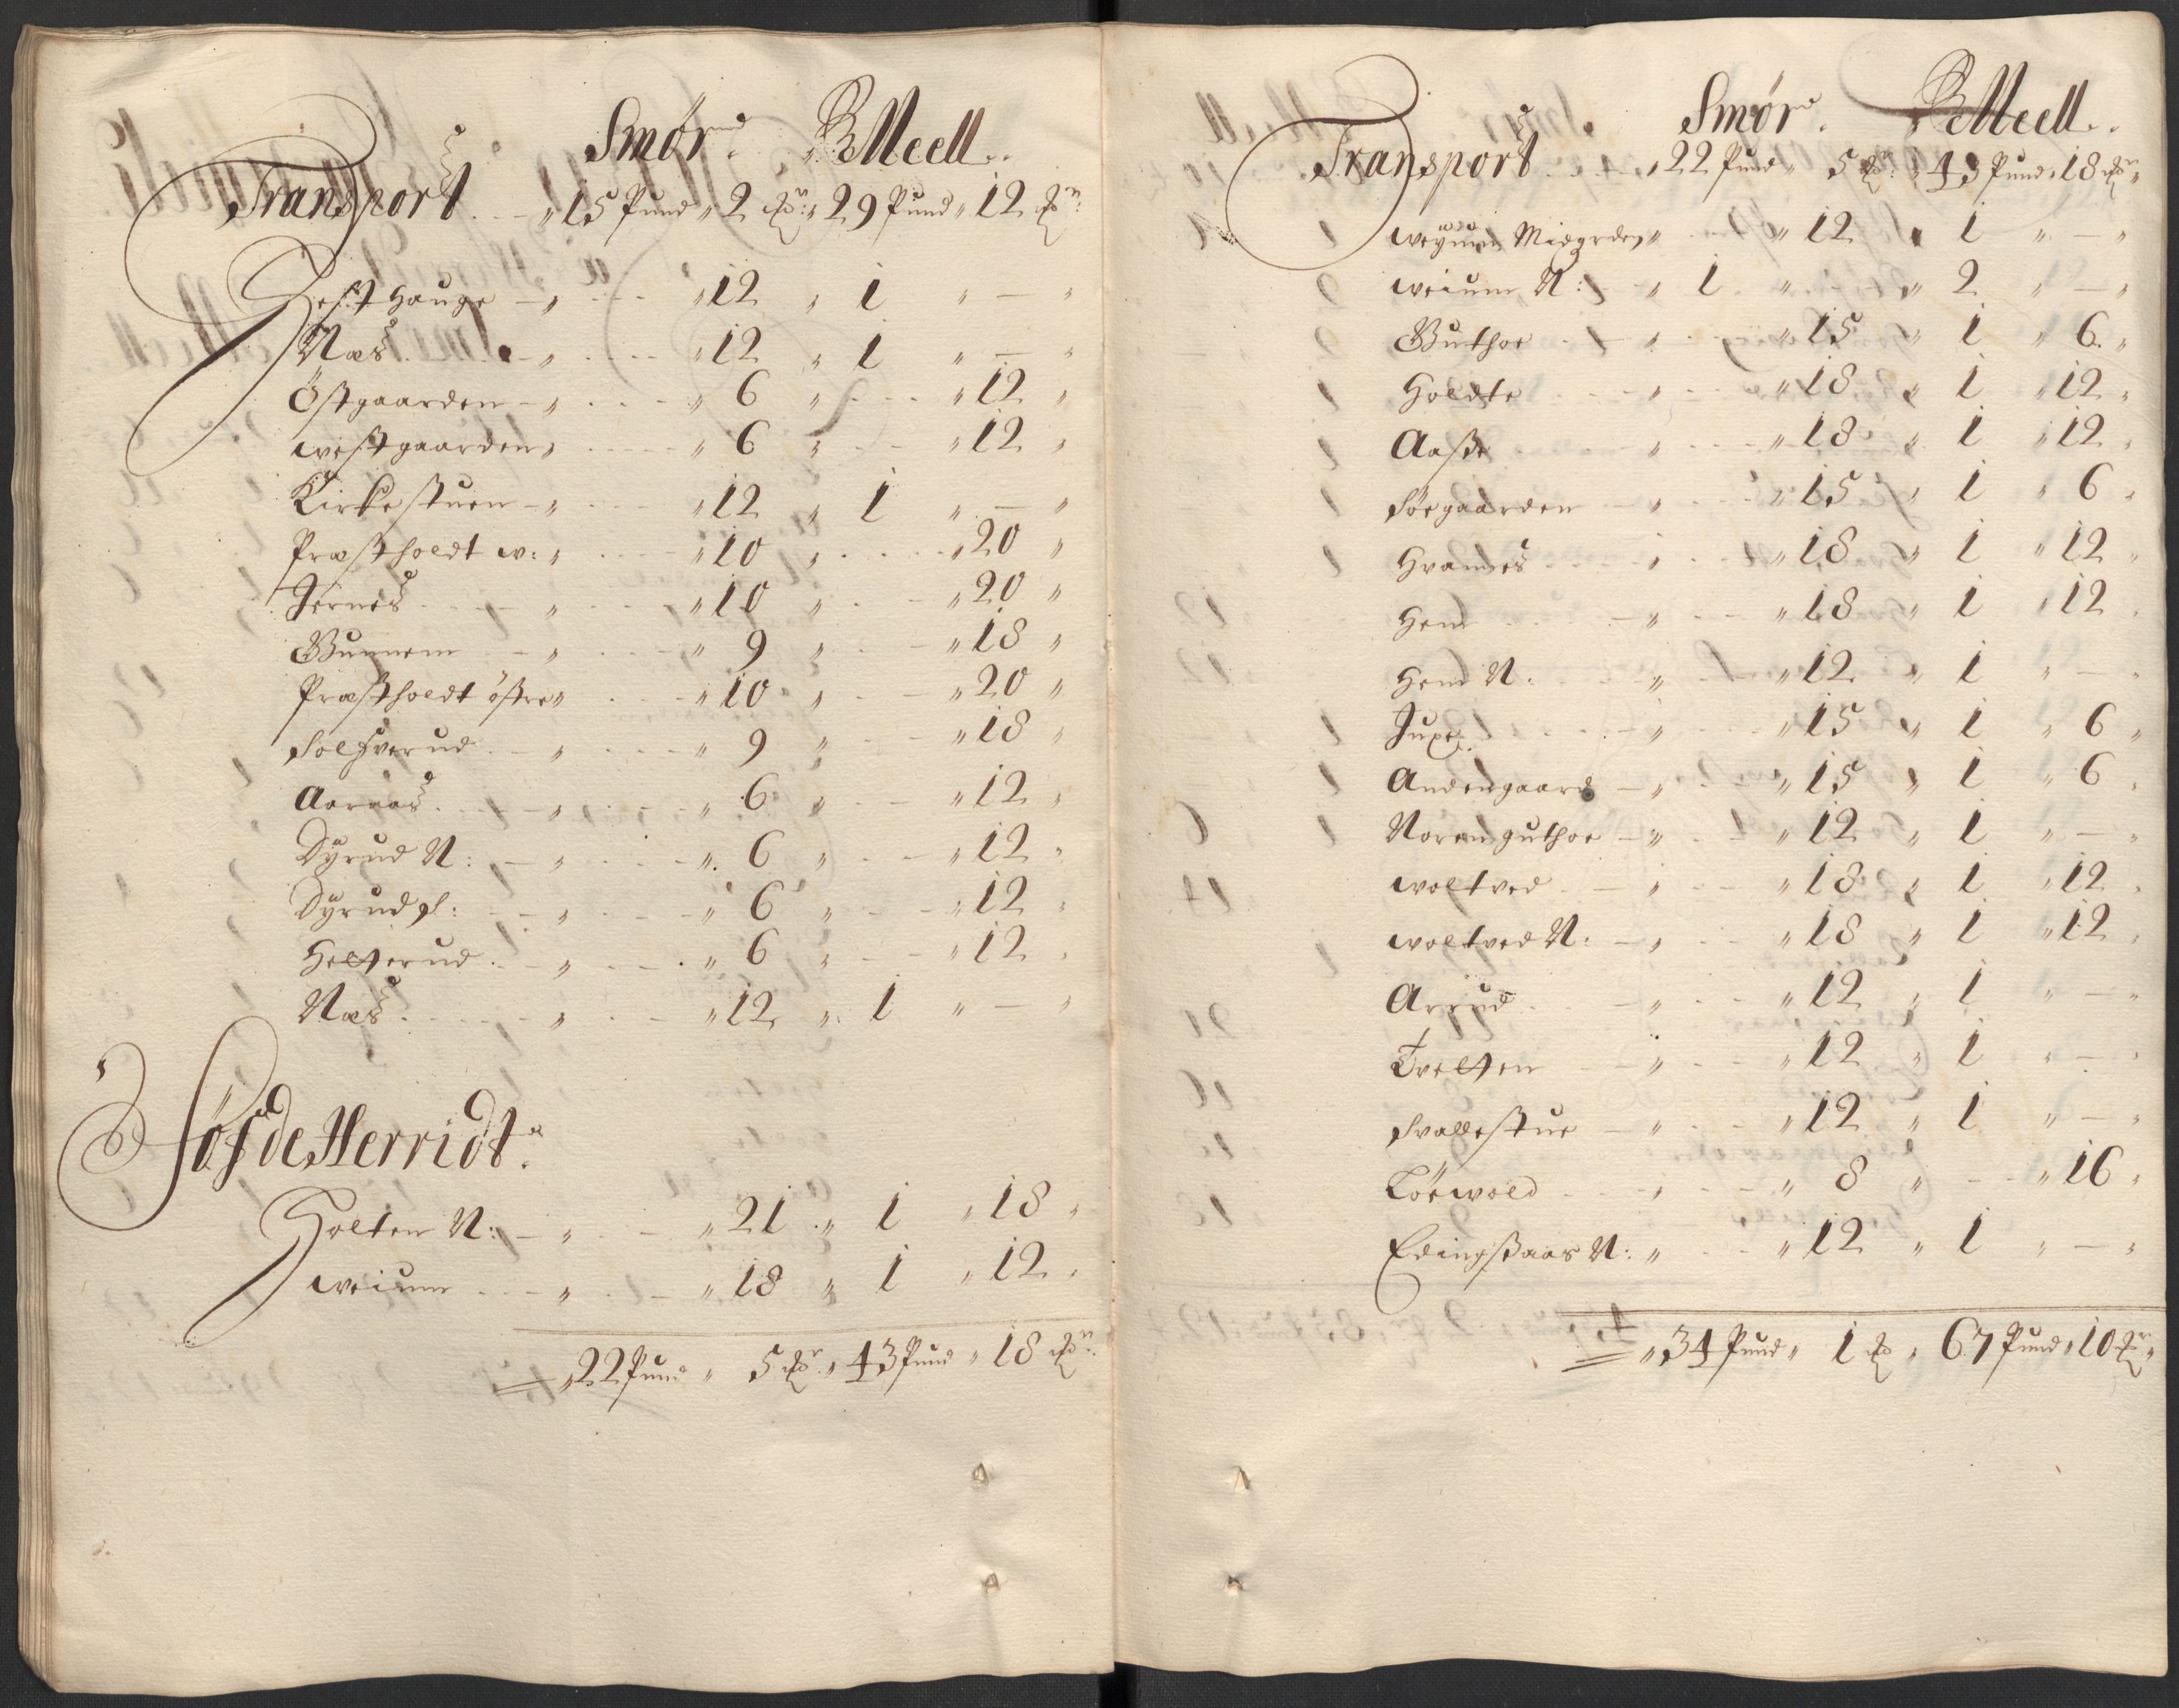 Smør. B Meell.
Transport „ 15 Pund „ 2 ℔r: „ 29 Pund „ 12 ℔r:
Hest Hauge „ 12 „ 1 „ — „
Næs „ 12 „ 1 „ — „
Östgaarden „ 6 „ 12 „
westgaarden „ 6 „ 12 „
Kirkestuen „ 12 „ 1 „ — „
Præstholdt w: „ 10 „ 20 „
Jernes „ 10 „ 20 „
Bunnem „ 9 „ 18 „
Præstholdt östre „ 10 „ 20 „
Solfverud „ 9 „ 18 „
Aaraas „ 6 „ 12 „
Dÿrud N: „ 6 „ 12 „
Dÿrud Sl: „ 6 „ 12 „
Helterud „ 6 „ 12 „
Næs „ 12 „ 1 „ — „
Søfde Herridt.
Holten N: „ 21 „ 1 „ 18 „
weium „ 18 „ 1 „ 12 „
„ 22 Pund „ 5 ℔r „ 43 Pund „ 18 ℔r:
Smør. B Meell.
Transport „ 22 Pund „ 5 ℔r: „ 43 Pund „ 18 ℔r „
Midgrden „ 12 „ 1 „ — „
weium N: „ 1 „ „ 2 „ — „
Guthoe „ 15 „ 1 „ 6 „
Holdte „ 18 „ 1 „ 12 „
Aasse „ 18 „ 1 „ 12 „
Söegaarden „ 15 „ 1 „ 6 „
Hvamb „ 18 „ 1 „ 12 „
Hem „ 18 „ 1 „ 12 „
Hem N: „ 12 „ 1 „ — „
Juxe „ 15 „ 1 „ 6 „
Andengaard „ 15 „ 1 „ 6 „
Noren guthoe „ 12 „ 1 „ — „
woltved „ 18 „ 1 „ 12 „
woltved N: „ 18 „ 1 „ 12 „
Arrud „ 12 „ 1 „ — „
Tvelten „ 12 „ 1 „ — „
Svallestue „ 12 „ 1 „ — „
Löewold „ 8 „ 16 „
Edingsaas N: „ 12 „ 1 „ — „
„ 34 Pund „ 1 ℔ „ 67 Pund „ 10 ℔r „